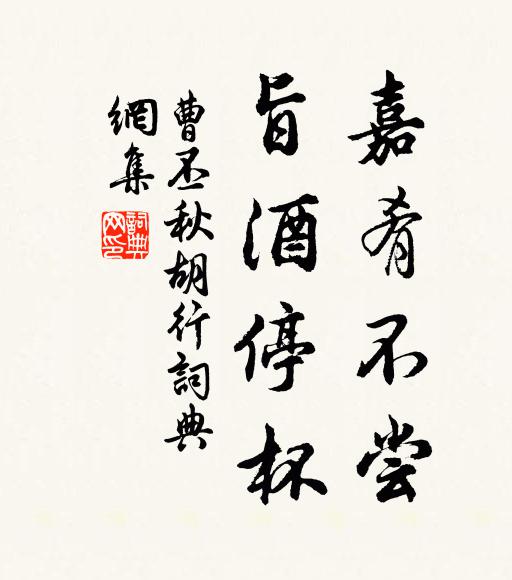 嘉肴不尝
旨酒停杯
曹丕秋胡行詞典
網集
詞典
网印